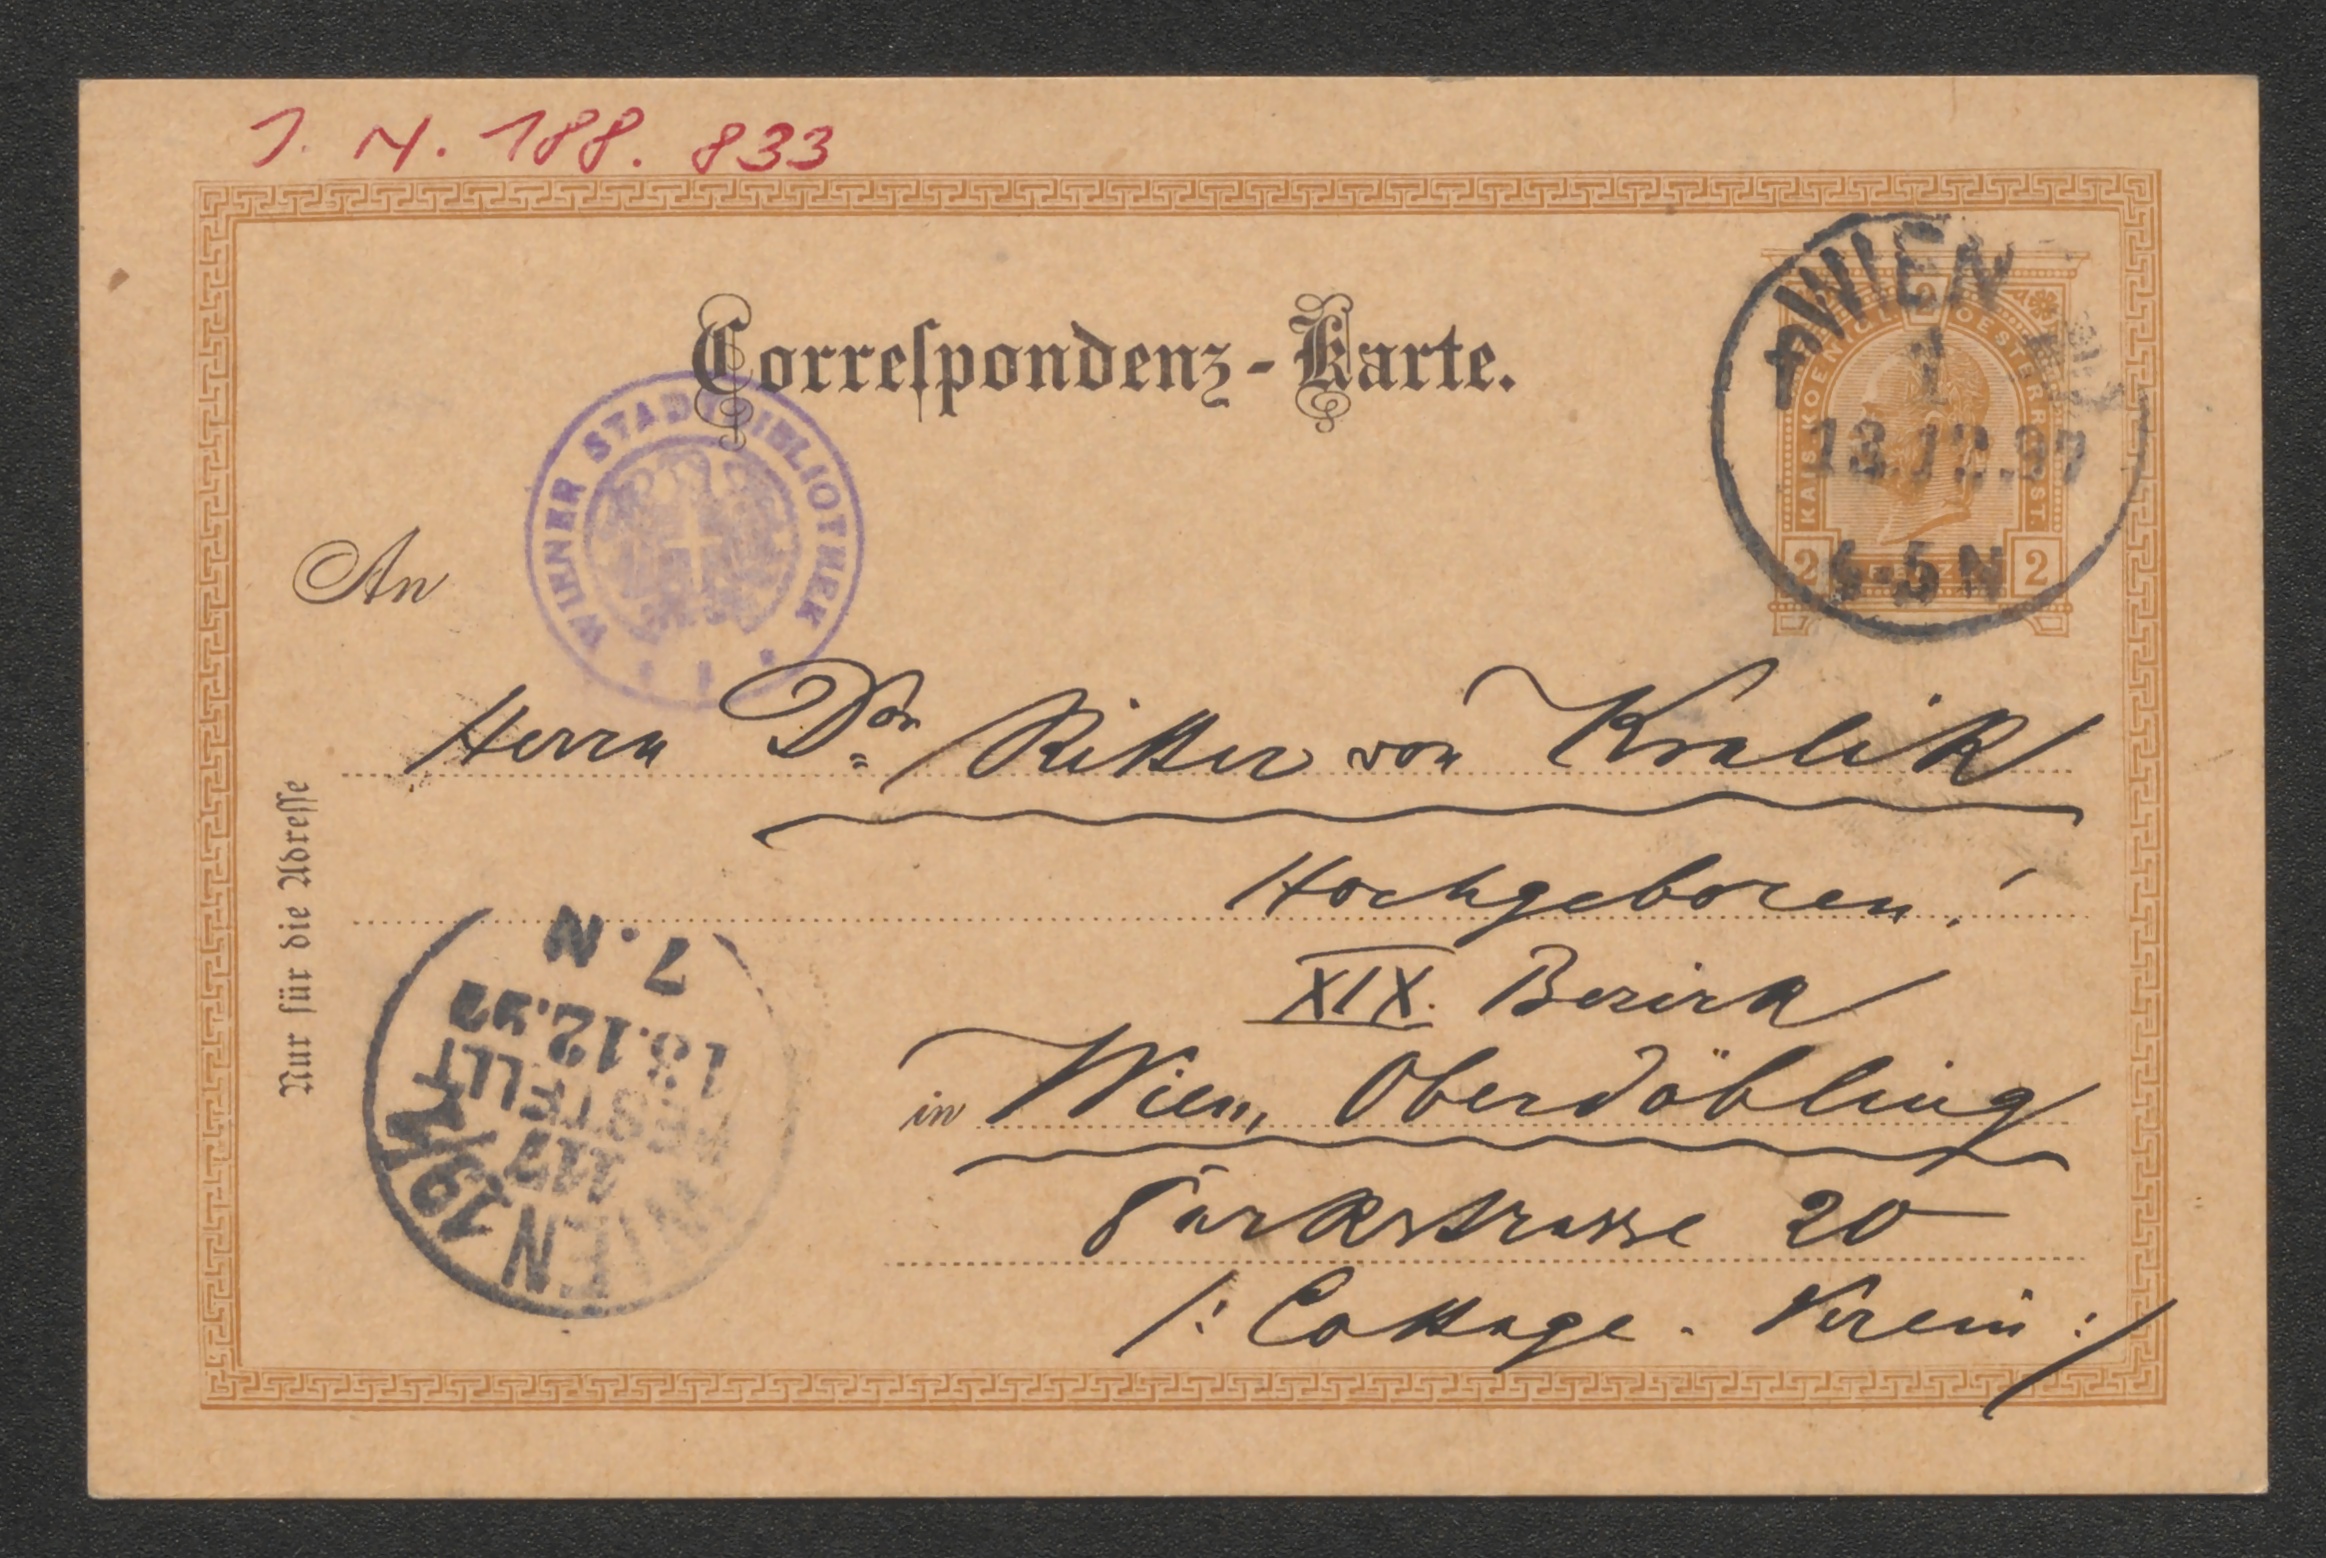 J. N. 188.833
Correſpondenz-Karte.
WIENER STADTBIBLIOTHEK
WIEN
1
13.12.97
4-5 N
KAIS. KOENIGL. OESTERR. POST.
2 2
An
Herrn Dor Ritter von Kralik
Hochgeboren!
XIX. Bezirk
in Wien, Oberdöbling
Parkstrasse 20
/: Cottage-Verein :/
Nur für die Adreſſe
WIEN 19/1
117
BESTELLT
13.12.97
7. N